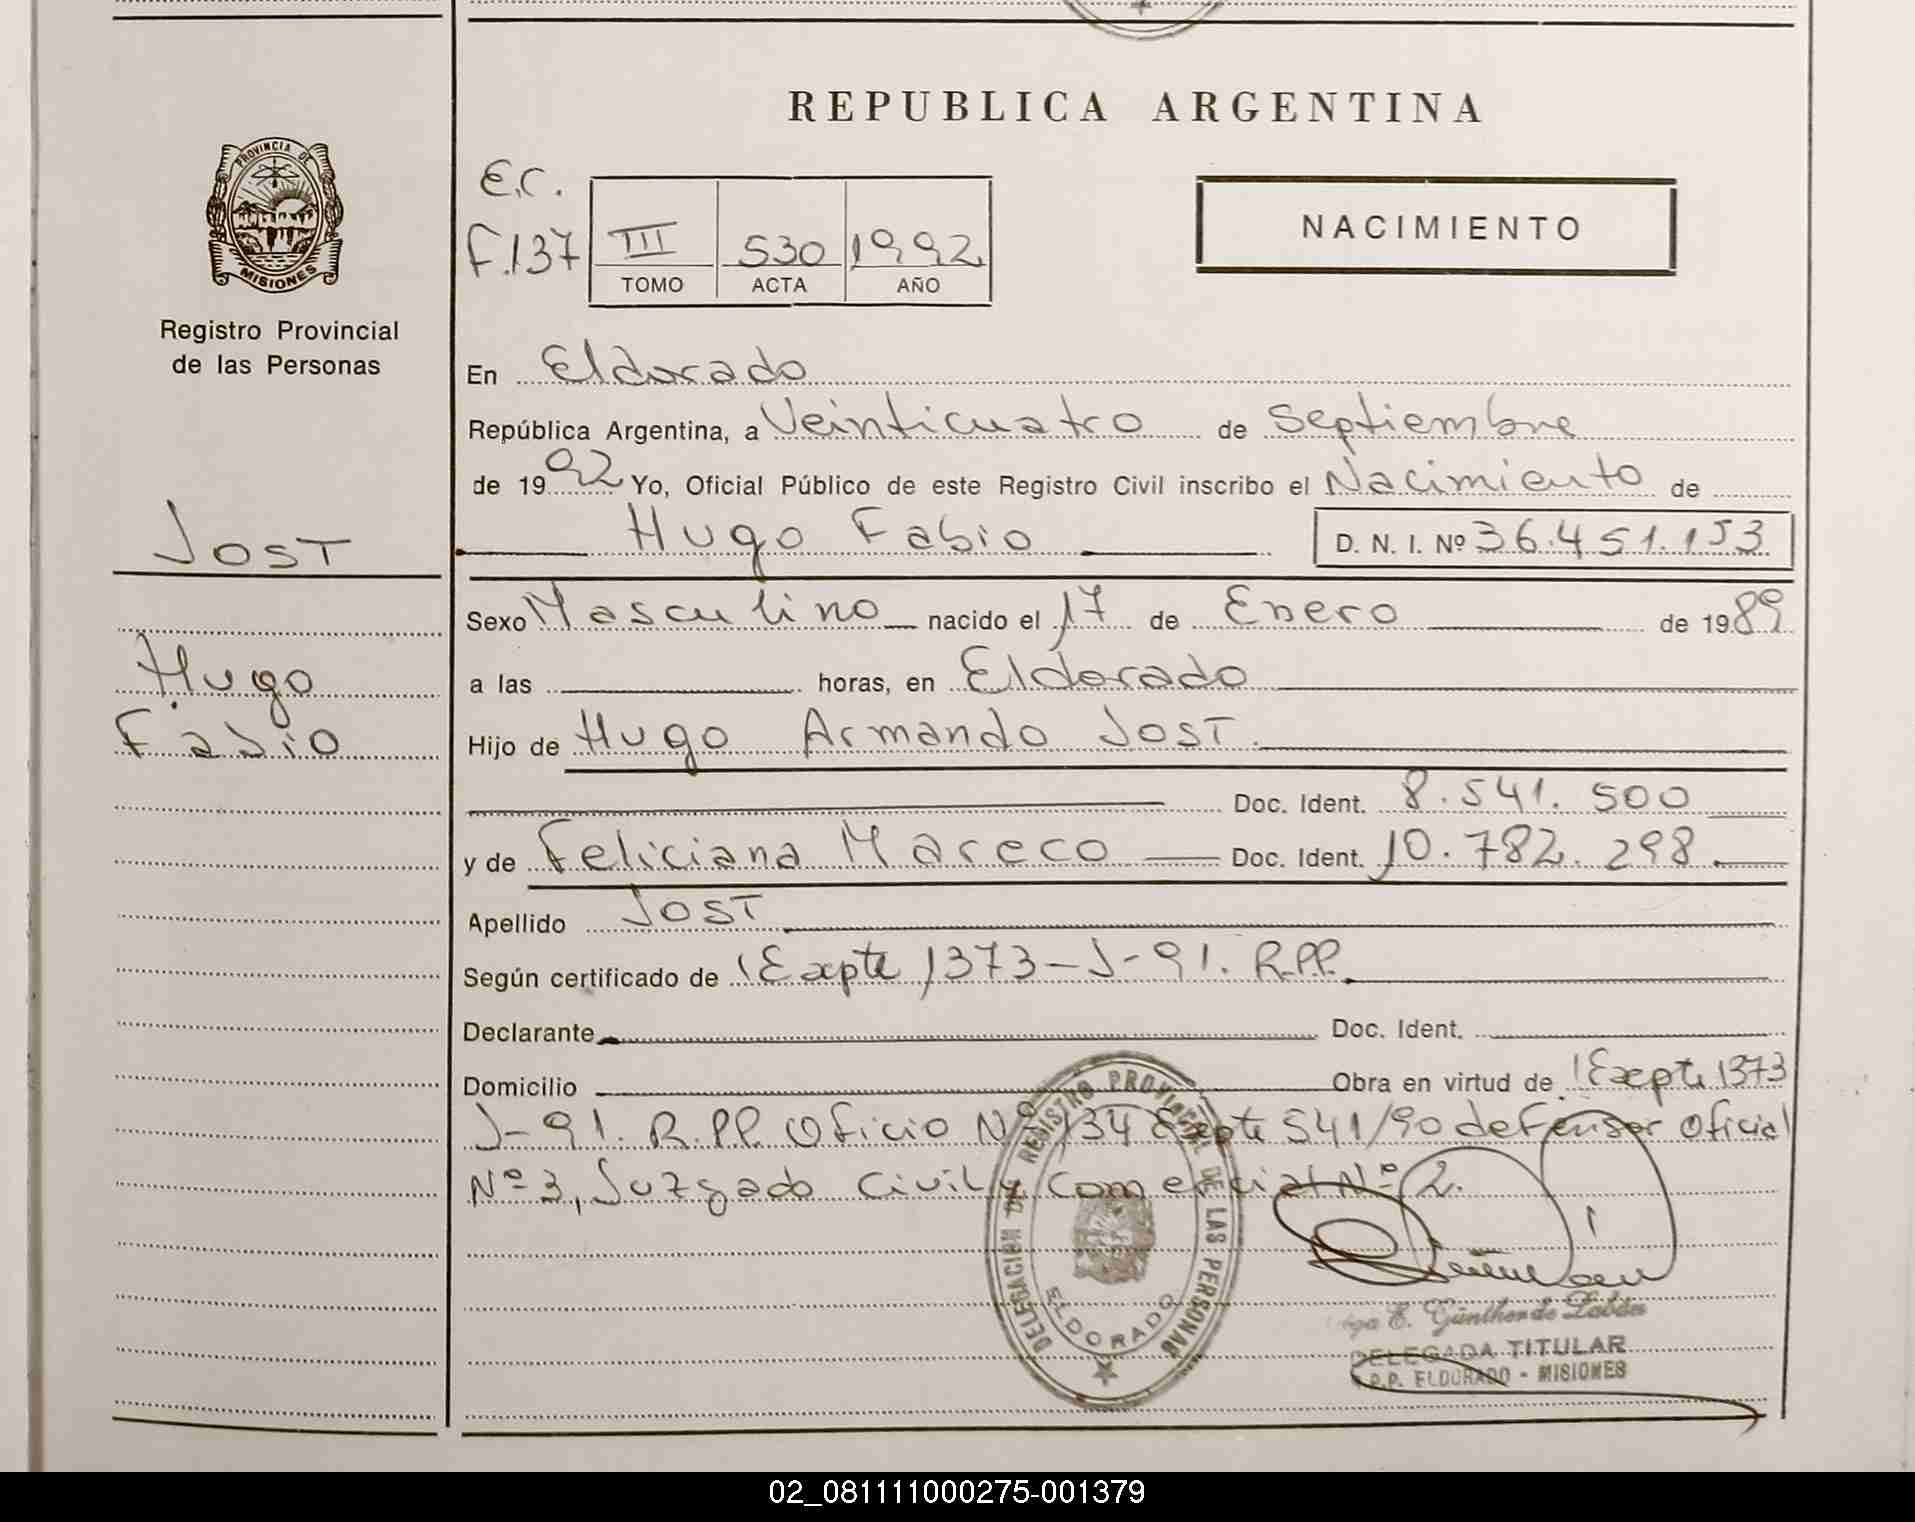 REPUBLICA ARGENTINA
PROVINCIA DE
MISIONES
Registro Provincial
de las Personas
E.C.
F.137
III 530 1992
TOMO ACTA AÑO
NACIMIENTO
En Eldorado
República Argentina, a Veinticuatro de Septiembre
de 1992 Yo, Oficial Público de este Registro Civil inscribo el Nacimiento de
Hugo Fabio D. N. I. Nº 36.451.153
JOST
Hugo
Fabio
Sexo Masculino nacido el 17 de Enero de 1989
a las horas, en Eldorado
Hijo de Hugo Armando JOST.
Doc. Ident. 8.541.500
y de Feliciana Mareco Doc. Ident. 10.782.298.
Apellido JOST
Según certificado de Expte 1373-J-91. R.P.P.
Declarante Doc. Ident.
Domicilio Obra en virtud de Expte 1373
J-91. R.P.P. Oficio Nº 134 Expte 541/90 defensor Oficial
Nº 3, Juzgado Civil y Comercial Nº 2.
DELEGACION DE REGISTRO PROVINCIAL DE LAS PERSONAS
ELDORADO
E. Günther de Labán
DELEGADA TITULAR
R.P.P. ELDORADO - MISIONES
02_081111000275-001379